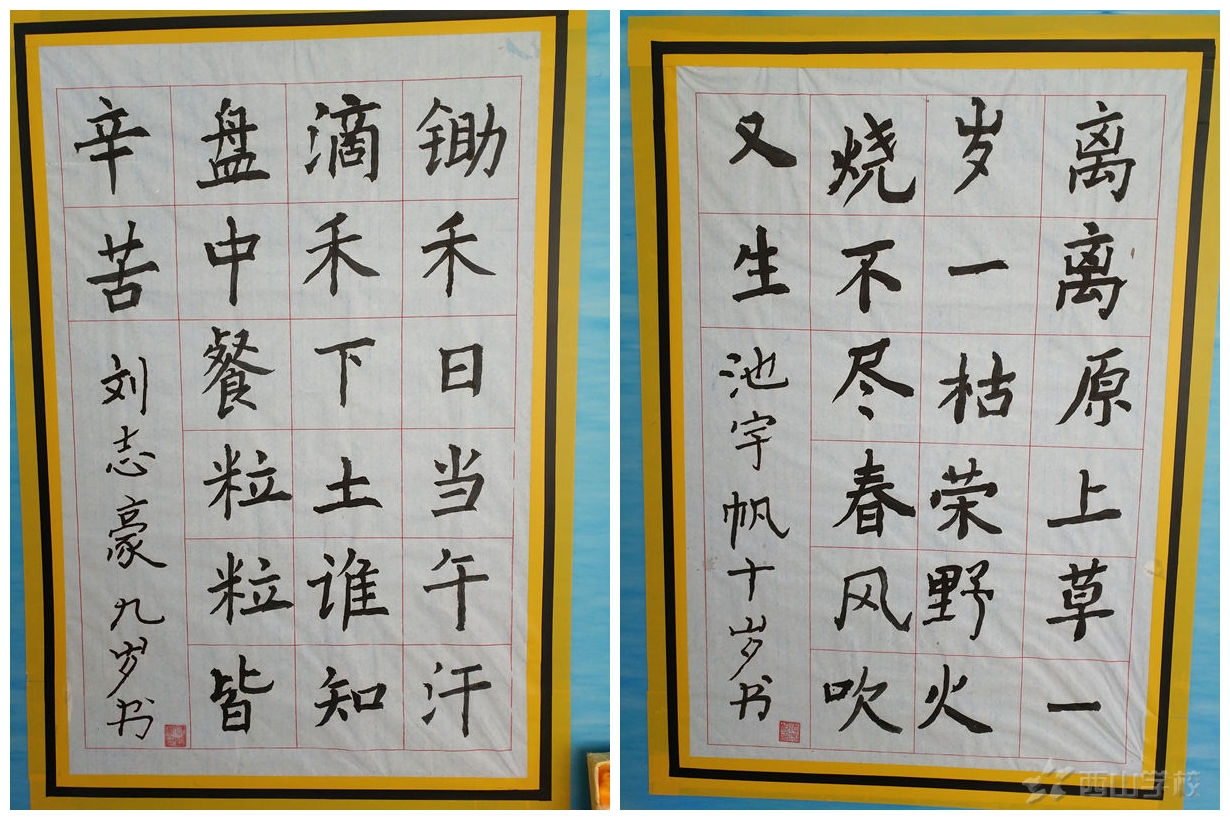 锄禾日当午汗
滴禾下土谁知
盘中餐粒粒皆
辛苦
刘志豪九岁书
离离原上草一
岁一枯荣野火
烧不尽春风吹
又生
池宇帆十岁书
西山学校